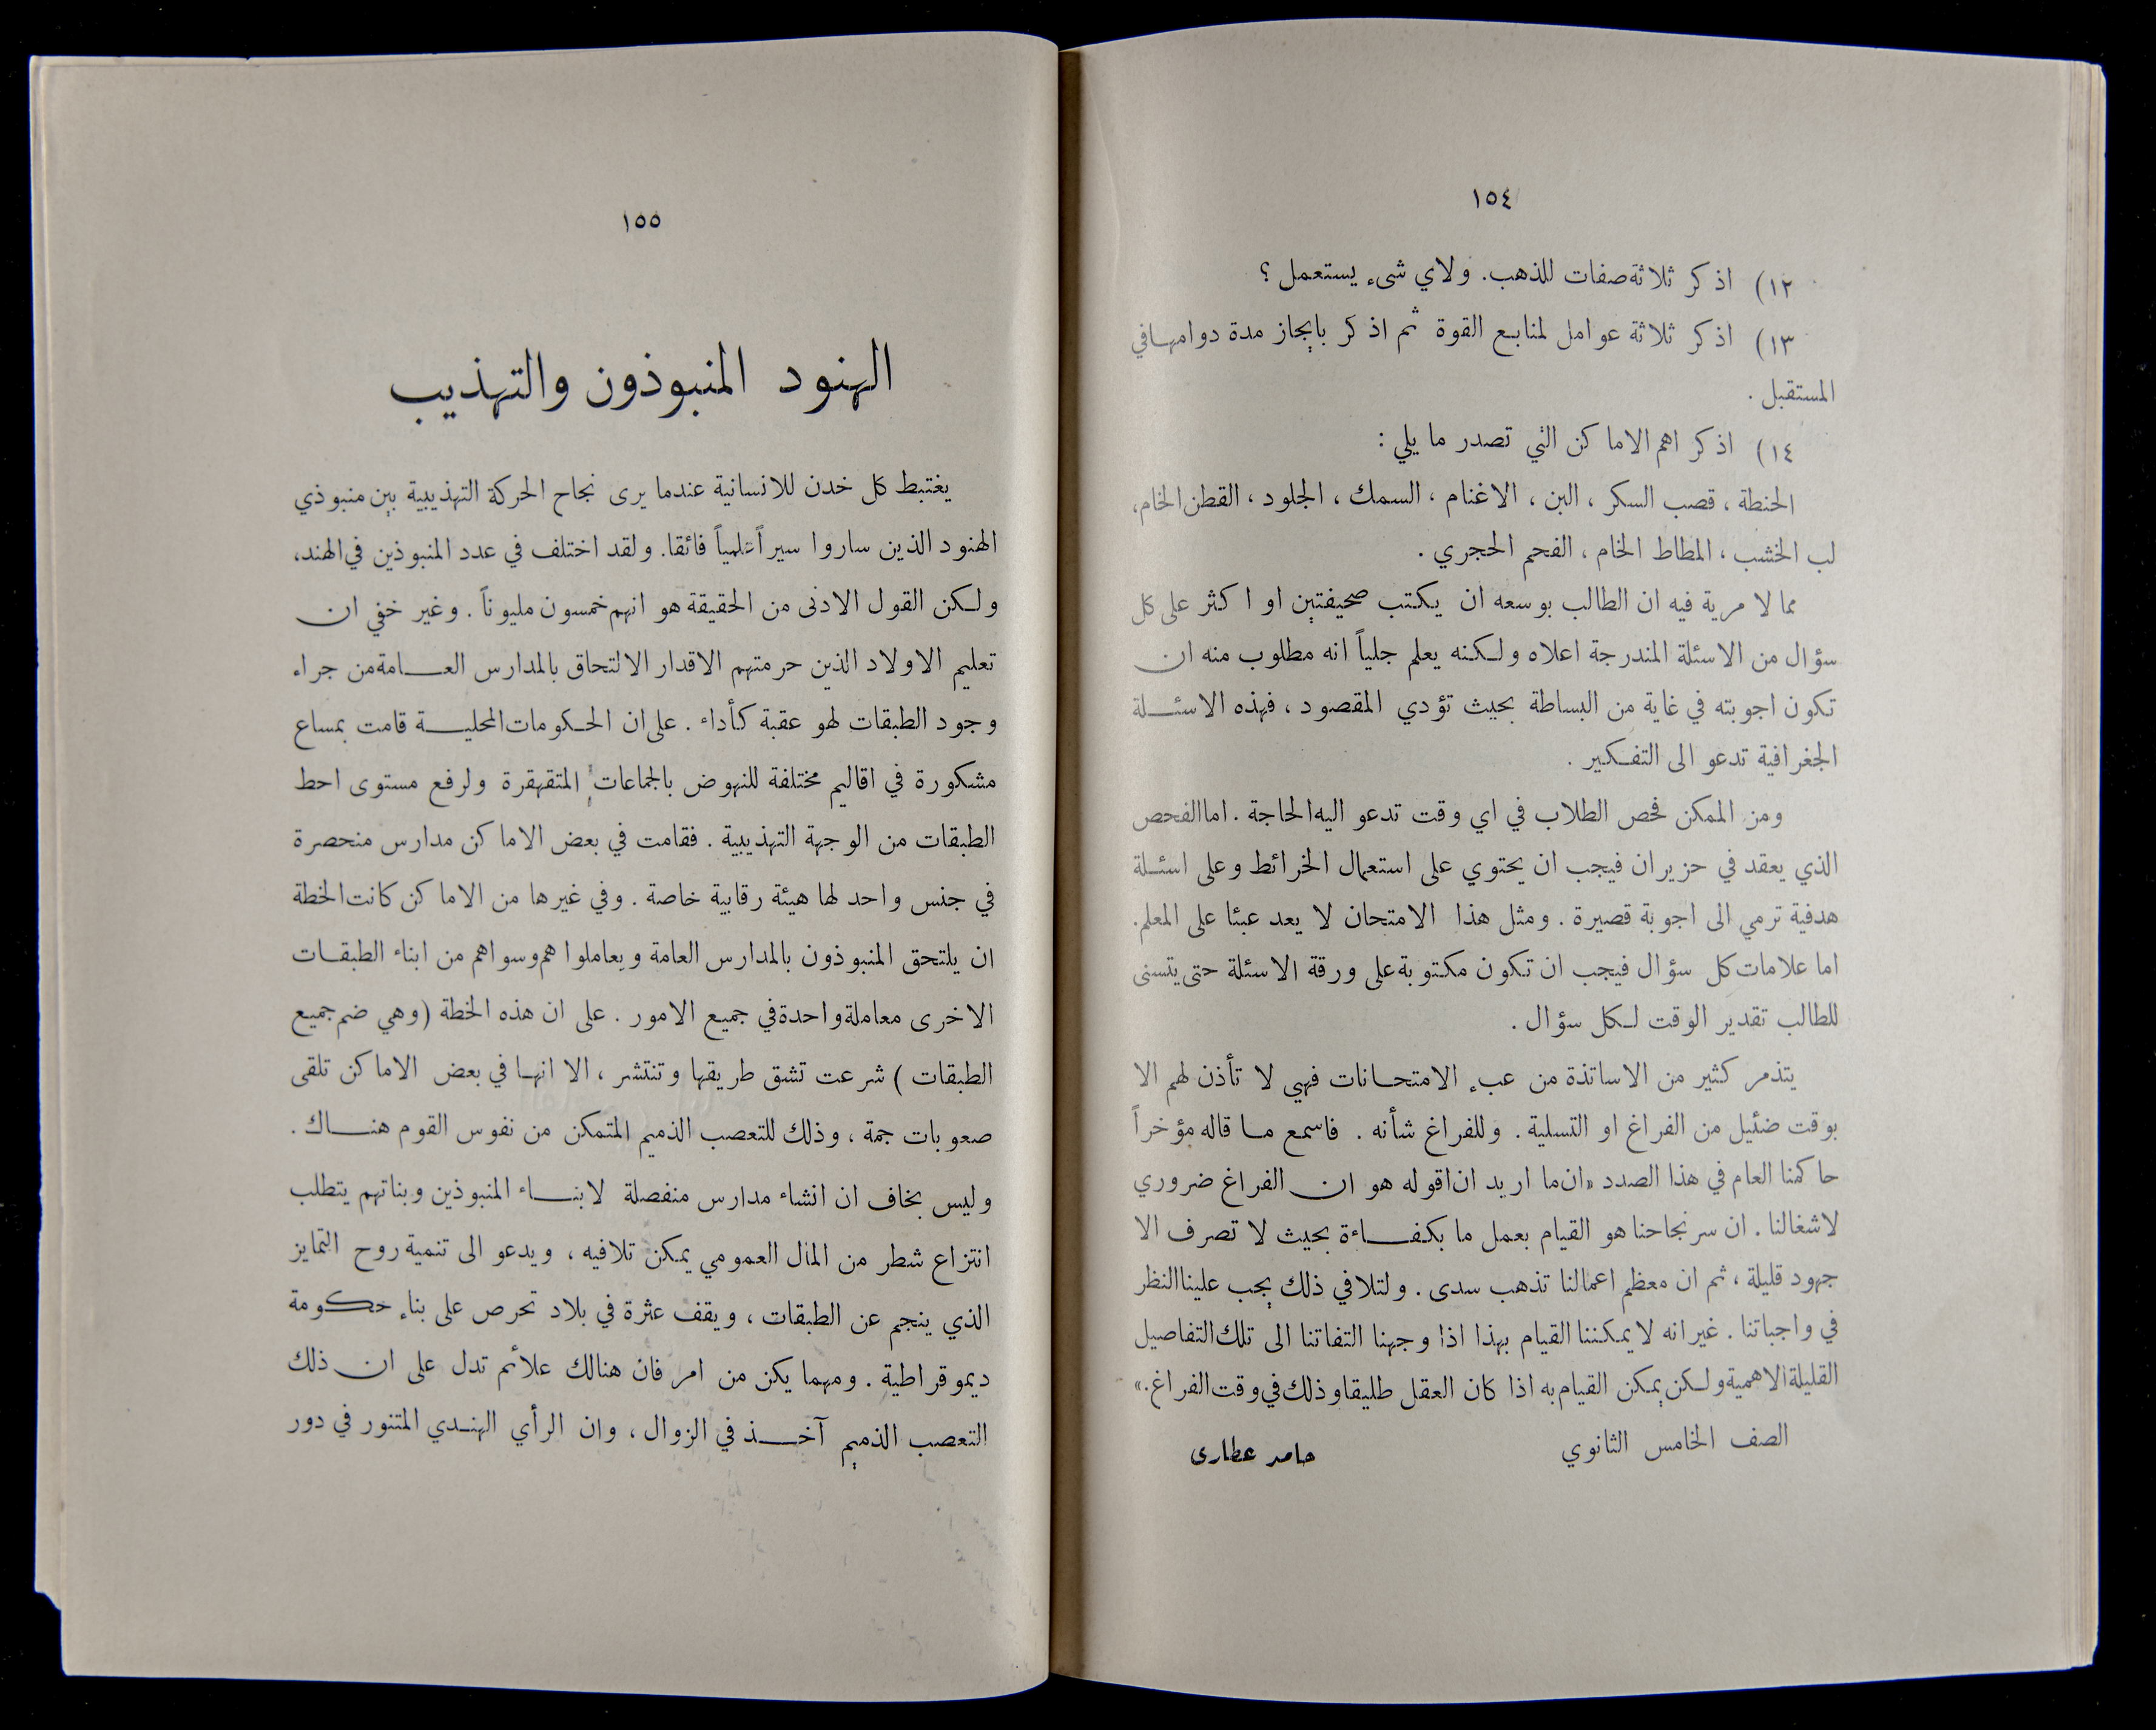 ١٥٤
١٢) اذكر ثلاثة صفات للذهب. ولاي شىء يستعمل ؟
١٣) اذكر ثلاثة عوامل لمنابع القوة ثم اذكر بايجاز مدة دوامها في
المستقبل .
١٤) اذكر اهم الاماكن التي تصدر ما يلي :
الحنطة ، قصب السكر ، البن ، الاغنام ، السمك ، الجلود ، القطن الخام،
لب الخشب ، المطاط الخام ، الفحم الحجري .
مما لا مرية فيه ان الطالب بوسعه ان يكتب صحيفتين او اكثر على كل
سؤال من الاسئلة المندرجة اعلاه ولكنه يعلم جلياً انه مطلوب منه ان
تكون اجوبته في غاية من البساطة بحيث تؤدي المقصود ، فهذه الاسئلة
الجغرافية تدعو الى التفكير .
ومن الممكن فحص الطلاب في اي وقت تدعو اليه الحاجة . اما الفحص
الذي يعقد في حزيران فيجب ان يحتوي على استعمال الخرائط وعلى اسئلة
هدفية ترمي الى اجوبة قصيرة . ومثل هذا الامتحان لا يعد عبئا على المعلم.
اما علامات كل سؤال فيجب ان تكون مكتوبة على ورقة الاسئلة حتى يتسنى
للطالب تقدير الوقت لكل سؤال .
يتذمر كثير من الاساتذة من عبء الامتحانات فهي لا تأذن لهم الا
بوقت ضئيل من الفراغ او التسلية . وللفراغ شأنه . فاسمع ما قاله مؤخراً
حاكمنا العام في هذا الصدد «ان ما اريد ان اقوله هو ان الفراغ ضروري
لاشغالنا . ان سر نجاحنا هو القيام بعمل ما بكفاءة بحيث لا تصرف الا
جهود قليلة ، ثم ان معظم اعمالنا تذهب سدى . ولتلافي ذلك يجب علينا النظر
في واجباتنا . غير انه لا يمكننا القيام بهذا اذا وجهنا التفاتنا الى تلك التفاصيل
القليلة الاهمية ولكن يمكن القيام به اذا كان العقل طليقا وذلك في وقت الفراغ.»
الصف الخامس الثانوي حامد عطارى
١٥٥
الهنود المنبوذون والتهذيب
يغتبط كل خدن للانسانية عندما يرى نجاح الحركة التهذيبية بين منبوذي
الهنود الذين ساروا سيراً علمياً فائقا. ولقد اختلف في عدد المنبوذين في الهند،
ولكن القول الادنى من الحقيقة هو انهم خمسون مليوناً . وغير خفي ان
تعليم الاولاد الذين حرمتهم الاقدار الالتحاق بالمدارس العامة من جراء
وجود الطبقات لهو عقبة كأداء . على ان الحكومات المحلية قامت بمساع
مشكورة في اقاليم مختلفة للنهوض بالجماعات المتقهقرة ولرفع مستوى احط
الطبقات من الوجهة التهذيبية . فقامت في بعض الاماكن مدارس منحصرة
في جنس واحد لها هيئة رقابية خاصة . وفي غيرها من الاماكن كانت الخطة
ان يلتحق المنبوذون بالمدارس العامة ويعاملوا هم وسواهم من ابناء الطبقات
الاخرى معاملة واحدة في جميع الامور . على ان هذه الخطة (وهي ضم جميع
الطبقات ) شرعت تشق طريقها وتنتشر ، الا انها في بعض الاماكن تلقى
صعوبات جمة ، وذلك للتعصب الذميم المتمكن من نفوس القوم هناك .
وليس بخاف ان انشاء مدارس منفصلة لابناء المنبوذين وبناتهم يتطلب
انتزاع شطر من المال العمومي يمكن تلافيه ، ويدعو الى تنمية روح التمايز
الذي ينجم عن الطبقات ، ويقف عثرة في بلاد تحرص على بناء حكومة
ديموقراطية . ومهما يكن من امر فان هنالك علائم تدل على ان ذلك
التعصب الذميم آخذ في الزوال ، وان الرأي الهندي المتنور في دور